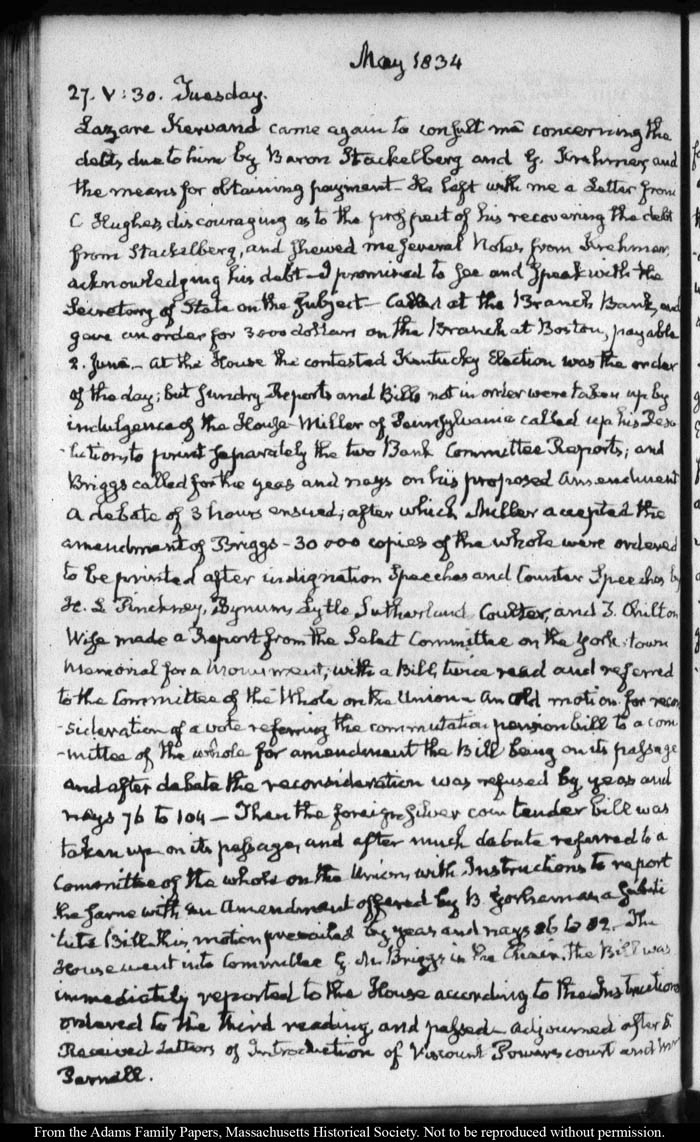 May 1834
27. V:30. Tuesday.
Lazare Kervand came again to consult me concerning the
debts due to him by Baron Stackelberg and G. Krehmer, and
the means for obtaining payment – He left with me a Letter from
C Hughes, discouraging as to the prospect of his recovering the debt
from Stackelberg, and shewed me several Notes from Krehmer,
acknowledging his debt – I promised to see and speak with the
Secretary of State on the subject – Called at the Branch Bank, and
gave an order for 3000 dollars on the Branch at Boston, payable
2. June. – At the House the contested Kentucky Election was the order
of the day; but sundry Reports and Bills not in order were taken up by
indulgence of the House – Miller of Pennsylvania called up his Reso
-lution, to print separately the two Bank Committee Reports; and
Briggs called for the yeas and nays on his proposed Amendment
A debate of 3 hours ensued; after which Miller accepted the
amendment of Briggs – 30 000 copies of the whole were ordered
to be printed after indignation Speeches and Counter Speeches by
H. L Pinckney, Bynum, Lytle, Sutherland Coulter, and T. Chilton
Wise made a Report from the Select Committee on the York-town
Memorial for a Monument, with a Bill, twice read and referred
to the Committee of the Whole on the Union – An old motion for recon
-sideration of a vote referring the commutation pension bill to a com
-mittee of the whole for amendment the Bill being on its passage
and after debate the reconsideration was refused by yeas and
nays 76 to 104 – Then the foreign Silver coin tender bill was
taken up on its passage, and after much debate referred to a
Committee of the whole on the Union, with Instructions to report
the same with an Amendment offered by B. Gorham as a substi
-tute Bill. this motion prevailed by yeas and nays to The
House went into Committee G. N. Briggs in the Chair. the Bill was
immediately reported to the House according to the Instructions
ordered to the third reading, and passed – Adjourned after 5.
Received Letters of Introduction of Viscount Powerscourt and Mr
Parnell.
From the Adams Family Papers, Massachusetts Historical Society. Not to be reproduced without permission.